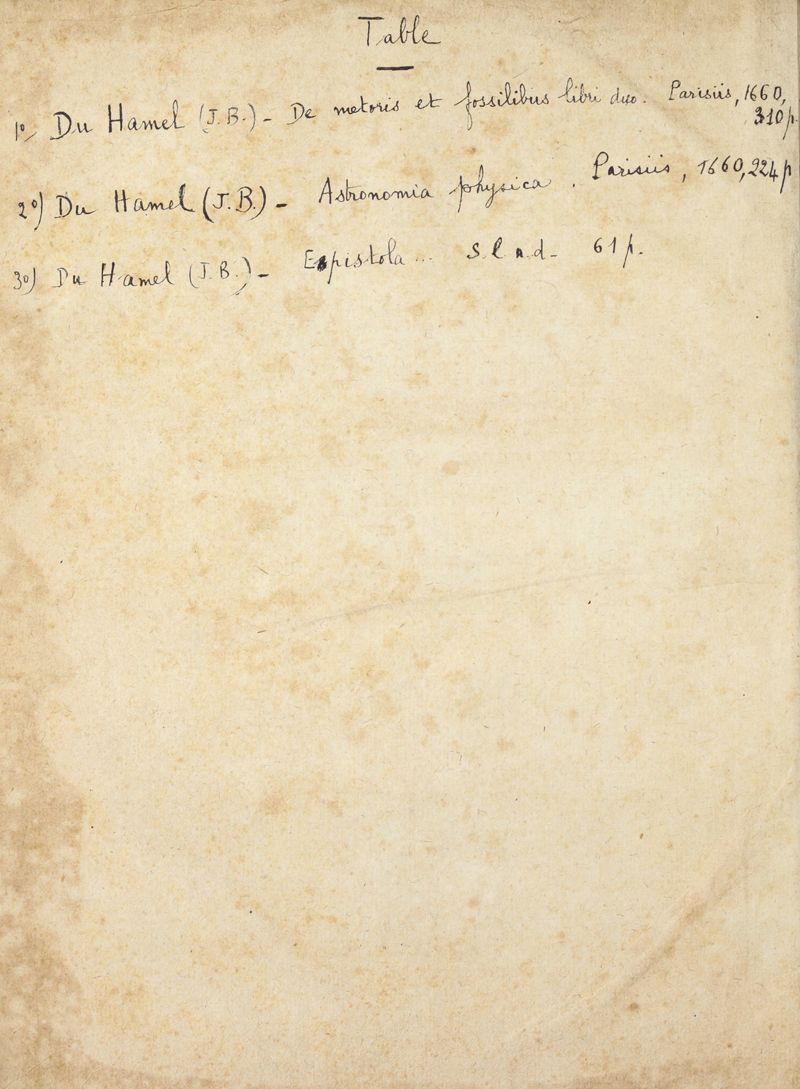 Table
1o/ Du Hamel (J. B.) - De metoris et fossilibus libri duo. Parisiis, 1660,
310 p.
2o) Du Hamel (J. B.) - Astronomia physica. Parisiis, 1660, 224 p
3o) Du Hamel (J. B.) - Epistola... S. l n. d - 61 p.